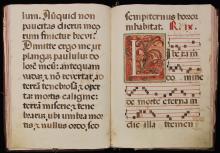 lum. Nũquid non
paucitas dierũ meor
rum finietur brevi?
Dimitte ergo me, ut
plangam paululũ do
lorẽ meũ: antequam
vadam, & nõ revertar, ad
terram tenebrosã, & oper
tam mortis caligine:
terram miseriæ & tene
brarum, ubi umbra mor
tis, & nullus ordo, sed
sempiternus horror
inhabitat.
Libera me
Domine
de morte eterna in
die illa tremen